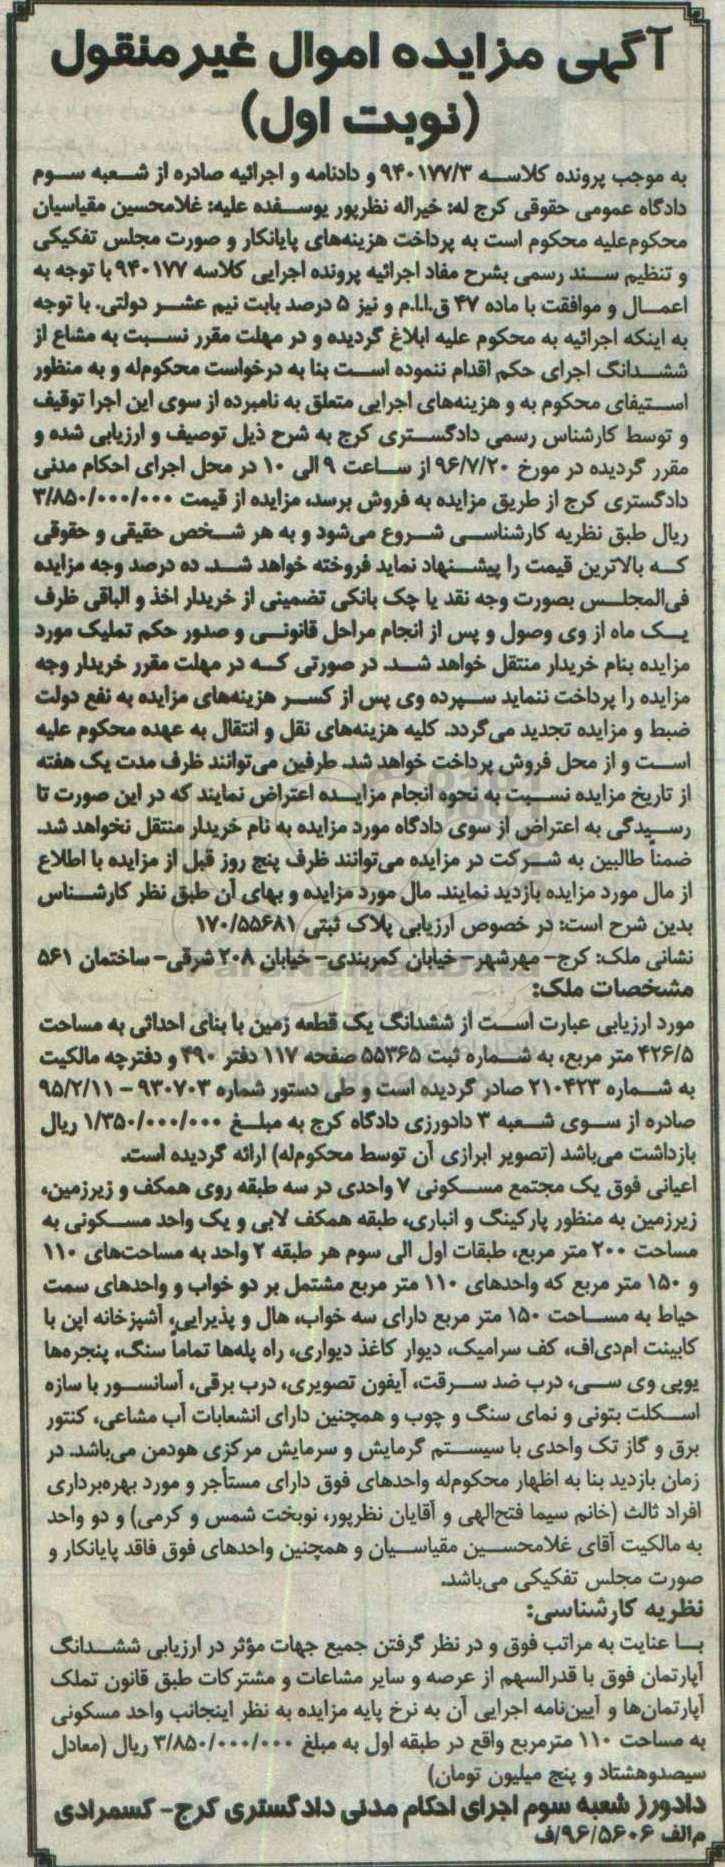 آگهی مزایده اموال غیرمنقول
(نوبت اول)
به موجب پرونده کلاسه ۹۴۰۱۷۷/۳ و دادنامه و اجرائیه صادره از شعبه سوم
دادگاه عمومی حقوقی کرج له: خیراله نظرپور یوسفده علیه: غلامحسین مقیاسیان
محکوم‌علیه محکوم است به پرداخت هزینه‌های پایانکار و صورت مجلس تفکیکی
و تنظیم سند رسمی بشرح مفاد اجرائیه پرونده اجرایی کلاسه ۹۴۰۱۷۷ با توجه به
اعمال و موافقت با ماده ۴۷ ق.ا.ا.م و نیز ۵ درصد بابت نیم عشر دولتی. با توجه
به اینکه اجرائیه به محکوم علیه ابلاغ گردیده و در مهلت مقرر نسبت به مشاع از
ششدانگ اجرای حکم اقدام ننموده است بنا به درخواست محکوم‌له و به منظور
استیفای محکوم به و هزینه‌های اجرایی متعلق به نامبرده از سوی این اجرا توقیف
و توسط کارشناس رسمی دادگستری کرج به شرح ذیل توصیف و ارزیابی شده و
مقرر گردیده در مورخ ۹۶/۷/۲۰ از ساعت ۹ الی ۱۰ در محل اجرای احکام مدنی
دادگستری کرج از طریق مزایده به فروش برسد، مزایده از قیمت ۳/۸۵۰/۰۰۰/۰۰۰
ریال طبق نظریه کارشناسی شروع می‌شود و به هر شخص حقیقی و حقوقی
که بالاترین قیمت را پیشنهاد نماید فروخته خواهد شد. ده درصد وجه مزایده
فی‌المجلس بصورت وجه نقد یا چک بانکی تضمینی از خریدار اخذ و الباقی ظرف
یک ماه از وی وصول و پس از انجام مراحل قانونی و صدور حکم تملیک مورد
مزایده بنام خریدار منتقل خواهد شد. در صورتی که در مهلت مقرر خریدار وجه
مزایده را پرداخت ننماید سپرده وی پس از کسر هزینه‌های مزایده به نفع دولت
ضبط و مزایده تجدید می‌گردد. کلیه هزینه‌های نقل و انتقال به عهده محکوم علیه
است و از محل فروش پرداخت خواهد شد. طرفین می‌توانند ظرف مدت یک هفته
از تاریخ مزایده نسبت به نحوه انجام مزایده اعتراض نمایند که در این صورت تا
رسیدگی به اعتراض از سوی دادگاه مورد مزایده به نام خریدار منتقل نخواهد شد.
ضمناً طالبین به شرکت در مزایده می‌توانند ظرف پنج روز قبل از مزایده با اطلاع
از مال مورد مزایده بازدید نمایند. مال مورد مزایده و بهای آن طبق نظر کارشناس
بدین شرح است: در خصوص ارزیابی پلاک ثبتی ۱۷۰/۵۵۶۸۱
نشانی ملک: کرج- مهرشهر- خیابان کمربندی- خیابان ۲۰۸ شرقی- ساختمان ۵۶۱
مشخصات ملک:
مورد ارزیابی عبارت است از ششدانگ یک قطعه زمین با بنای احداثی به مساحت
۴۲۶/۵ متر مربع، به شماره ثبت ۵۵۳۶۵ صفحه ۱۱۷ دفتر ۴۹۰ و دفترچه مالکیت
به شماره ۲۱۰۴۲۳ صادر گردیده است و طی دستور شماره ۹۳۰۷۰۳ - ۹۵/۲/۱۱
صادره از سوی شعبه ۳ دادورزی دادگاه کرج به مبلغ ۱/۳۵۰/۰۰۰/۰۰۰ ریال
بازداشت می‌باشد (تصویر ابرازی آن توسط محکوم‌له) ارائه گردیده است.
اعیانی فوق یک مجتمع مسکونی ۷ واحدی در سه طبقه روی همکف و زیرزمین،
زیرزمین به منظور پارکینگ و انباری، طبقه همکف لابی و یک واحد مسکونی به
مساحت ۲۰۰ متر مربع، طبقات اول الی سوم هر طبقه ۲ واحد به مساحت‌های ۱۱۰
و ۱۵۰ متر مربع که واحدهای ۱۱۰ متر مربع مشتمل بر دو خواب و واحدهای سمت
حیاط به مساحت ۱۵۰ متر مربع دارای سه خواب، هال و پذیرایی، آشپزخانه اپن با
کابینت ام‌دی‌اف، کف سرامیک، دیوار کاغذ دیواری، راه پله‌ها تماماً سنگ، پنجره‌ها
یوپی وی سی، درب ضد سرقت، آیفون تصویری، درب برقی، آسانسور با سازه
اسکلت بتونی و نمای سنگ و چوب و همچنین دارای انشعابات آب مشاعی، کنتور
برق و گاز تک واحدی با سیستم گرمایش و سرمایش مرکزی هودمن می‌باشد. در
زمان بازدید بنا به اظهار محکوم‌له واحدهای فوق دارای مستأجر و مورد بهره‌برداری
افراد ثالث (خانم سیما فتح‌الهی و آقایان نظرپور، نوبخت شمس و کرمی) و دو واحد
به مالکیت آقای غلامحسین مقیاسیان و همچنین واحدهای فوق فاقد پایانکار و
صورت مجلس تفکیکی می‌باشد.
نظریه کارشناسی:
با عنایت به مراتب فوق و در نظر گرفتن جمیع جهات مؤثر در ارزیابی ششدانگ
آپارتمان فوق با قدرالسهم از عرصه و سایر مشاعات و مشترکات طبق قانون تملک
آپارتمان‌ها و آیین‌نامه اجرایی آن به نرخ پایه مزایده به نظر اینجانب واحد مسکونی
به مساحت ۱۱۰ مترمربع واقع در طبقه اول به مبلغ ۳/۸۵۰/۰۰۰/۰۰۰ ریال (معادل
سیصدوهشتاد و پنج میلیون تومان)
دادورز شعبه سوم اجرای احکام مدنی دادگستری کرج- کسمرادی
م‌الف ۹۶/۵۶۰۶/ف